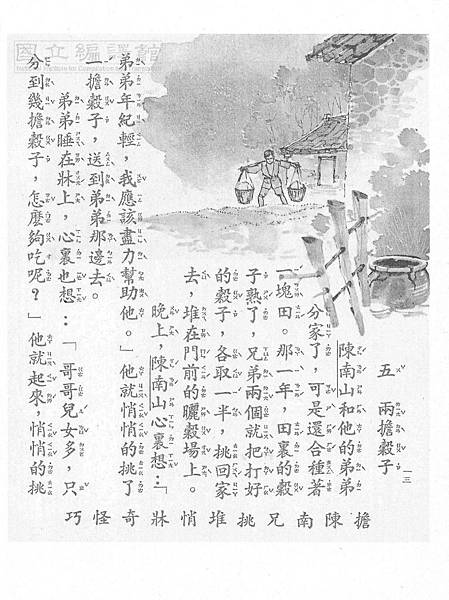 國立編譯館
五　兩擔穀子
一三
陳南山和他的弟弟
分家了，可是還合種著
一塊田。那一年，田裏的穀
子熟了，兄弟兩個就把打好
的穀子，各取一半，挑回家
去，堆在門前的曬穀場上。
晚上，陳南山心裏想：「
弟弟年紀輕，我應該盡力幫助他。」他就悄悄的挑了
一擔穀子，送到弟弟那邊去。
弟弟睡在牀上，心裏也想：「哥哥兒女多，只
分到幾擔穀子，怎麼夠吃呢？」他就起來，悄悄的挑
擔陳南兄挑堆悄牀奇怪巧